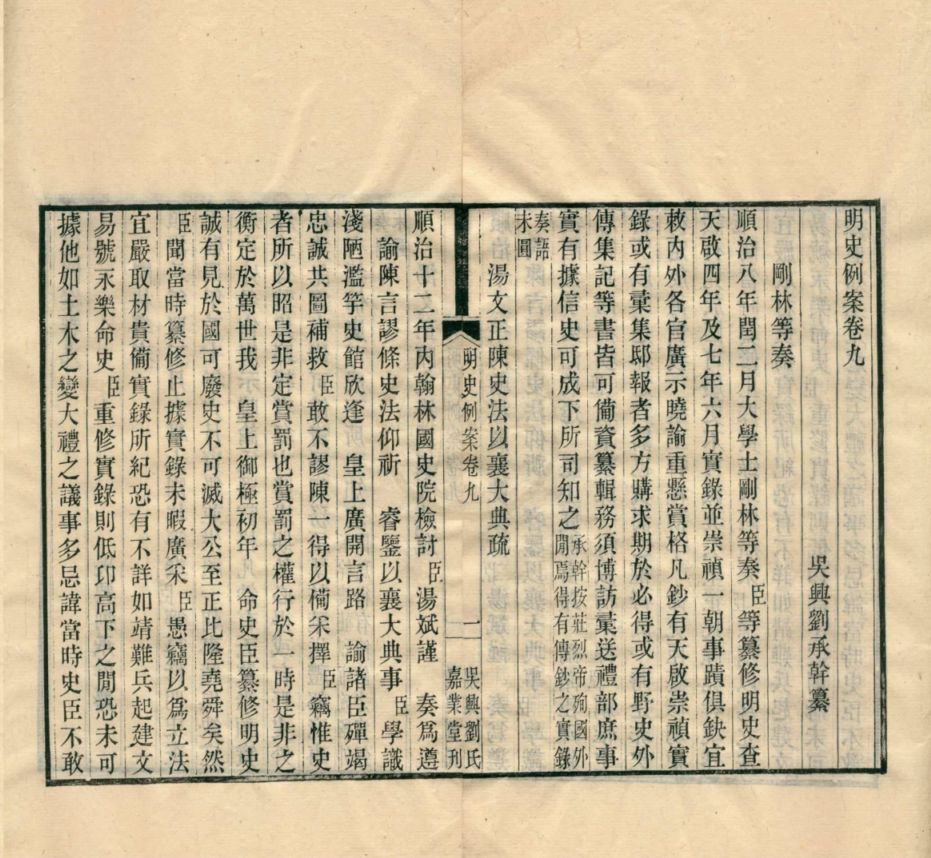 明史例案卷九
吳興劉承幹纂
剛林等奏
順治八年閏二月大學士剛林等奏臣等纂修明史查
天啟四年及七年六月實錄並崇禎一朝事蹟俱缺宜
敕內外各官廣示曉諭重懸賞格凡鈔有天啟崇禎實
錄或有彙集邸報者多方購求期於必得或有野史外
傳集記等書皆可備資纂輯務須博訪彙送禮部庶事
實有據信史可成下所司知之承幹按莊烈帝殉國外
閒焉得有傳鈔之實錄
奏語
未圓
湯文正陳史法以襄大典疏
順治十二年內翰林國史院檢討臣湯斌謹 奏為遵
諭陳言謬條史法仰祈 睿鑒以襄大典事臣學識
淺陋濫竽史館欣逢 皇上廣開言路 諭諸臣殫竭
忠誠共圖補救臣敢不謬陳一得以備采擇臣竊惟史
者所以昭是非定賞罰也賞罰之權行於一時是非之
衡定於萬世我 皇上御極初年 命史臣纂修明史
誠有見於國可廢史不可滅大公至正比隆堯舜矣然
臣聞當時纂修止據實錄未暇廣采臣愚竊以為立法
宜嚴取材貴備實錄所紀恐有不詳如靖難兵起建文
易號永樂命史臣重修實錄則低卬高下之閒恐未可
據他如土木之變大禮之議事多忌諱當時史臣不敢
明史例案卷九
一
吳興劉氏
嘉業堂刊